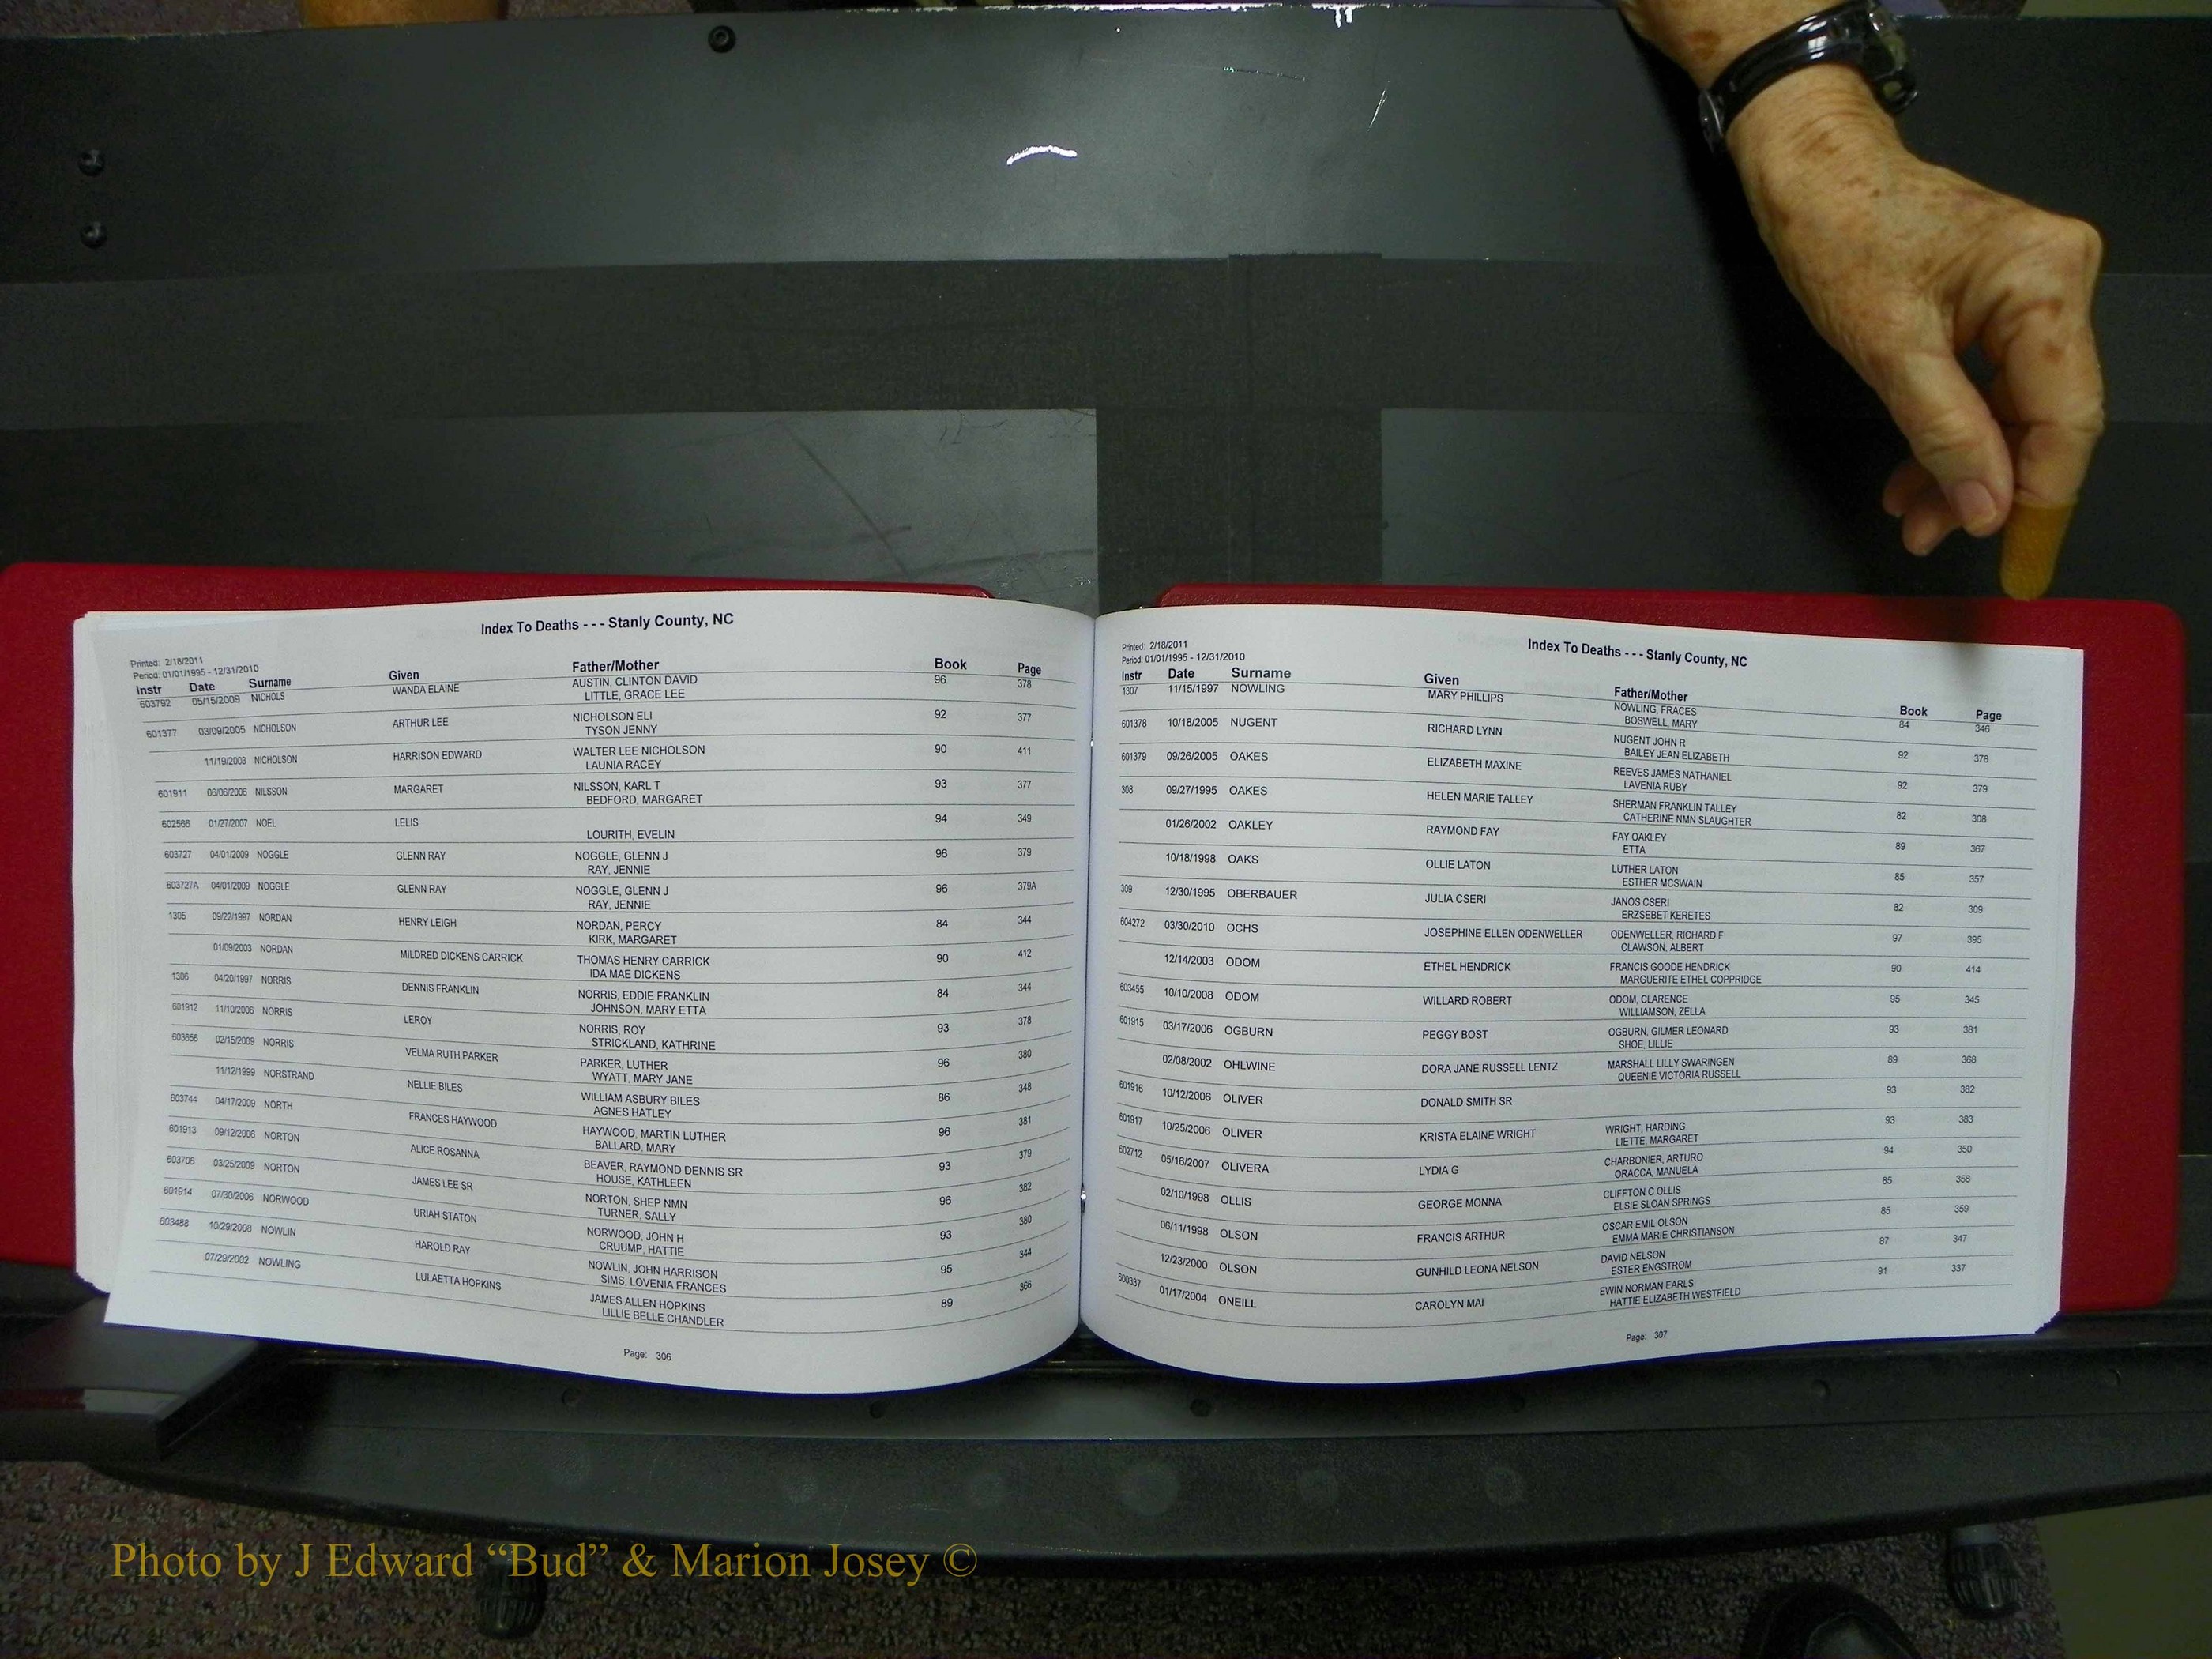 Index To Deaths - - - Stanly County, NC
Printed: 2/18/2011
Period: 01/01/1995 - 12/31/2010
Instr Date Surname Given Father/Mother Book Page
603792 05/15/2009 NICHOLS WANDA ELAINE AUSTIN, CLINTON DAVID 96 378
LITTLE, GRACE LEE
601377 03/09/2005 NICHOLSON ARTHUR LEE NICHOLSON ELI 92 377
TYSON JENNY
11/19/2003 NICHOLSON HARRISON EDWARD WALTER LEE NICHOLSON 90 411
LAUNIA RACEY
601911 06/06/2006 NILSSON MARGARET NILSSON, KARL T 93 377
BEDFORD, MARGARET
602566 01/27/2007 NOEL LELIS 94 349
LOURITH, EVELIN
603727 04/01/2009 NOGGLE GLENN RAY NOGGLE, GLENN J 96 379
RAY, JENNIE
603727A 04/01/2009 NOGGLE GLENN RAY NOGGLE, GLENN J 96 379A
RAY, JENNIE
1305 09/22/1997 NORDAN HENRY LEIGH NORDAN, PERCY 84 344
KIRK, MARGARET
01/09/2003 NORDAN MILDRED DICKENS CARRICK THOMAS HENRY CARRICK 90 412
IDA MAE DICKENS
1306 04/20/1997 NORRIS DENNIS FRANKLIN NORRIS, EDDIE FRANKLIN 84 344
JOHNSON, MARY ETTA
601912 11/10/2006 NORRIS LEROY NORRIS, ROY 93 378
STRICKLAND, KATHRINE
603656 02/15/2009 NORRIS VELMA RUTH PARKER PARKER, LUTHER 96 380
WYATT, MARY JANE
11/12/1999 NORSTRAND NELLIE BILES WILLIAM ASBURY BILES 86 348
AGNES HATLEY
603744 04/17/2009 NORTH FRANCES HAYWOOD HAYWOOD, MARTIN LUTHER 96 381
BALLARD, MARY
601913 09/12/2006 NORTON ALICE ROSANNA BEAVER, RAYMOND DENNIS SR 93 379
HOUSE, KATHLEEN
603706 03/25/2009 NORTON JAMES LEE SR NORTON, SHEP NMN 96 382
TURNER, SALLY
601914 07/30/2006 NORWOOD URIAH STATON NORWOOD, JOHN H 93 380
CRUUMP, HATTIE
603488 10/29/2008 NOWLIN HAROLD RAY NOWLIN, JOHN HARRISON 95 344
SIMS, LOVENIA FRANCES
07/29/2002 NOWLING LULAETTA HOPKINS JAMES ALLEN HOPKINS 89 366
LILLIE BELLE CHANDLER
Page: 306
Index To Deaths - - - Stanly County, NC
Printed: 2/18/2011
Period: 01/01/1995 - 12/31/2010
Instr Date Surname Given Father/Mother Book Page
1307 11/15/1997 NOWLING MARY PHILLIPS NOWLING, FRACES 84 346
BOSWELL, MARY
601378 10/18/2005 NUGENT RICHARD LYNN NUGENT JOHN R 92 378
BAILEY JEAN ELIZABETH
601379 09/26/2005 OAKES ELIZABETH MAXINE REEVES JAMES NATHANIEL 92 379
LAVENIA RUBY
308 09/27/1995 OAKES HELEN MARIE TALLEY SHERMAN FRANKLIN TALLEY 82 308
CATHERINE NMN SLAUGHTER
01/26/2002 OAKLEY RAYMOND FAY FAY OAKLEY 89 367
ETTA
10/18/1998 OAKS OLLIE LATON LUTHER LATON 85 357
ESTHER MCSWAIN
309 12/30/1995 OBERBAUER JULIA CSERI JANOS CSERI 82 309
ERZSEBET KERETES
604272 03/30/2010 OCHS JOSEPHINE ELLEN ODENWELLER ODENWELLER, RICHARD F 97 395
CLAWSON, ALBERT
12/14/2003 ODOM ETHEL HENDRICK FRANCIS GOODE HENDRICK 90 414
MARGUERITE ETHEL COPPRIDGE
603455 10/10/2008 ODOM WILLARD ROBERT ODOM, CLARENCE 95 345
WILLIAMSON, ZELLA
601915 03/17/2006 OGBURN PEGGY BOST OGBURN, GILMER LEONARD 93 381
SHOE, LILLIE
02/08/2002 OHLWINE DORA JANE RUSSELL LENTZ MARSHALL LILLY SWARINGEN 89 368
QUEENIE VICTORIA RUSSELL
601916 10/12/2006 OLIVER DONALD SMITH SR 93 382
601917 10/25/2006 OLIVER KRISTA ELAINE WRIGHT WRIGHT, HARDING 93 383
LIETTE, MARGARET
602712 05/16/2007 OLIVERA LYDIA G CHARBONIER, ARTURO 94 350
ORACCA, MANUELA
02/10/1998 OLLIS GEORGE MONNA CLIFFTON C OLLIS 85 358
ELSIE SLOAN SPRINGS
06/11/1998 OLSON FRANCIS ARTHUR OSCAR EMIL OLSON 85 359
EMMA MARIE CHRISTIANSON
12/23/2000 OLSON GUNHILD LEONA NELSON DAVID NELSON 87 347
ESTER ENGSTROM
600337 01/17/2004 ONEILL CAROLYN MAI EWIN NORMAN EARLS 91 337
HATTIE ELIZABETH WESTFIELD
Page: 307
Photo by J Edward “Bud” & Marion Josey ©